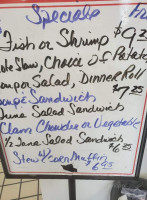 Specials
Fish or Shrimp $9.25
Cole Slaw, Choice of Potato,
Soup or Salad, Dinner Roll
Soup & Sandwich $7.25
Tuna Salad Sandwich
Clam Chowder or Vegetable
1/2 Tuna Salad Sandwich
Stew w/ Corn Muffin